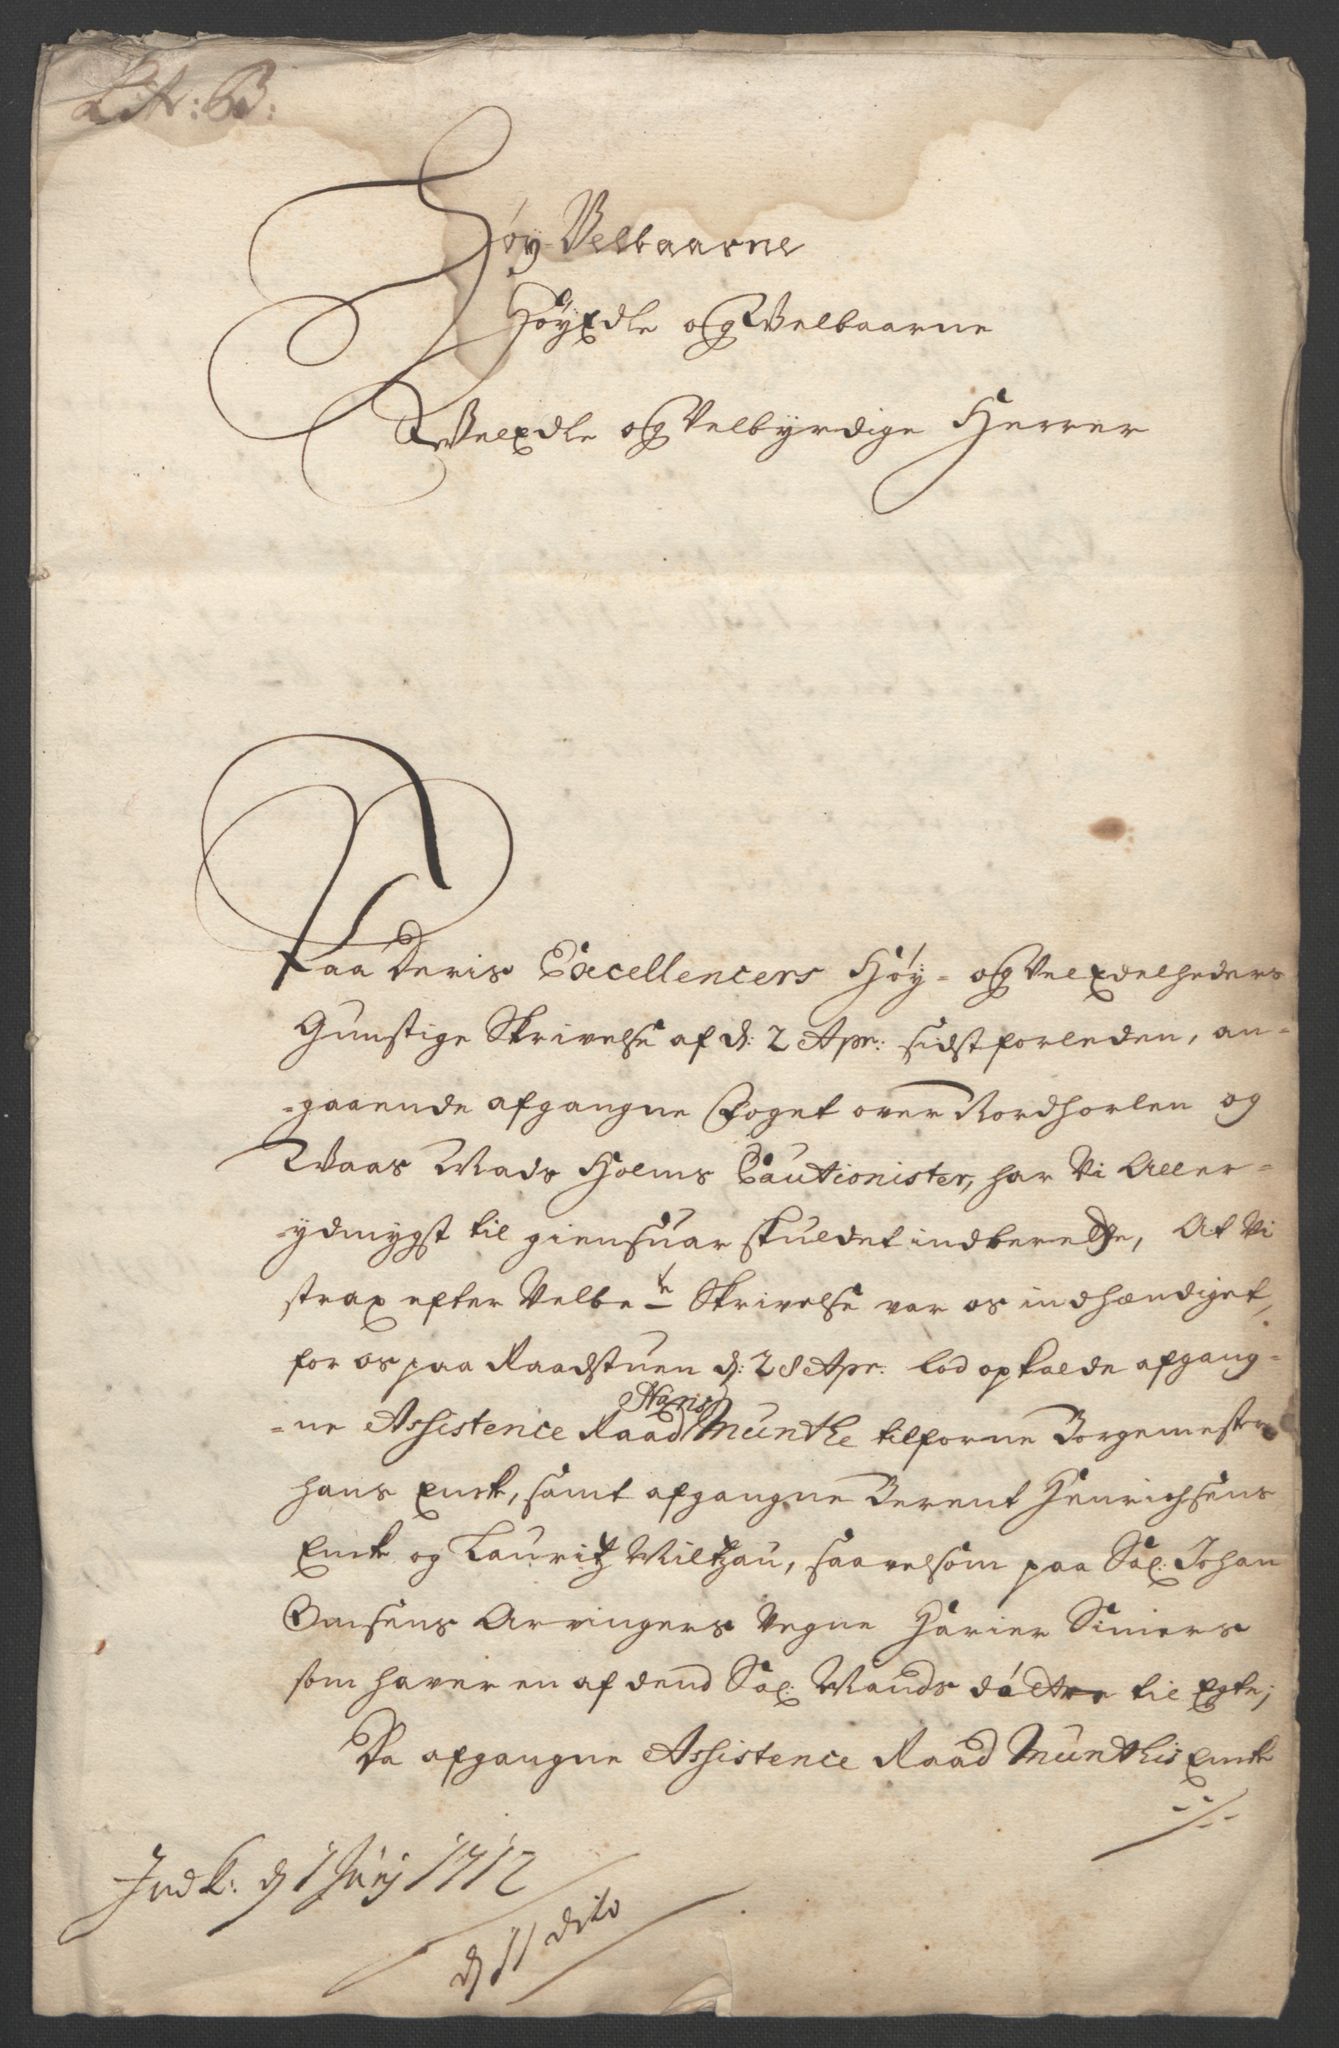 Lit: B:
Høy-Velbaarne
HøyEdle og Welbaarne
WelEdle og Velbyrdige Herrer
Paa Deris Excellencers Høy- og VelEdelheders
Gunstige Skrivelse af d: 2 Apr: sidstforleden, an-
-gaaende afgangne Foget over Nordhorlen og
Waas Mads Holms Cautionister, har Vi Aller-
-ydmygst til giensuar skuldet indberette, At Vi
strax efter Velbete Skrivelse var os indhændiget,
for os paa Raadstuen d: 28 Apr: lod opkalde afgang-
-ne Assistence Raad Hans Munthe tilforne Borgemester
hans Enke, samt afgangne Berent Henrichsens
Enke og Lauritz Miltzau, saavelsom paa Sal: Johan
Omsens Arvingers Vegne Harier Simers
som haver en af dend Sal: Mands døttre til Egte;
Da afgangne Assistence Raad Munthis Enke
-/-
Indk: d 1 Junj 1712
d 11 dito